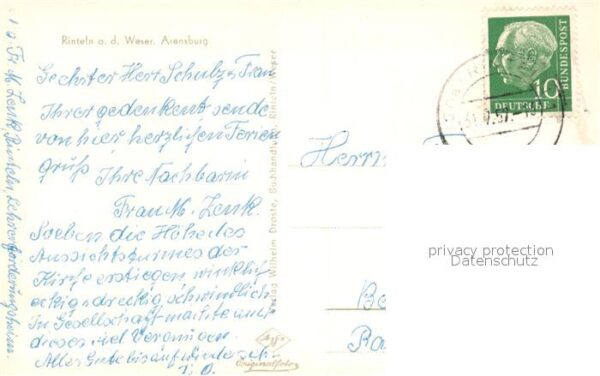 Rinteln a. d. Weser, Arensburg
Geehrter Herr Schulz u. Frau
Ihrer gedenkent sende
von hier herzlichen Ferien
gruß Ihre Nachbarin
Frau M. Zenk.
Soeben die Höhe des
Aussichtsturmes der
Kirche erstiegen winklich
eckig dreckig schwindlich
In Gesellschaft machte auch
dieses viel Vernügen.
Alles Gute bis auf wiederseh
Fr M. Zenk, Rinteln, Lehrerförderungsheim.
Verlag Wilhelm Droste, Buchhandlung, Rinteln/Weser
Agfa
Originalfoto
DEUTSCHE
BUNDESPOST
10
57
Herrn
privacy protection
Datenschutz